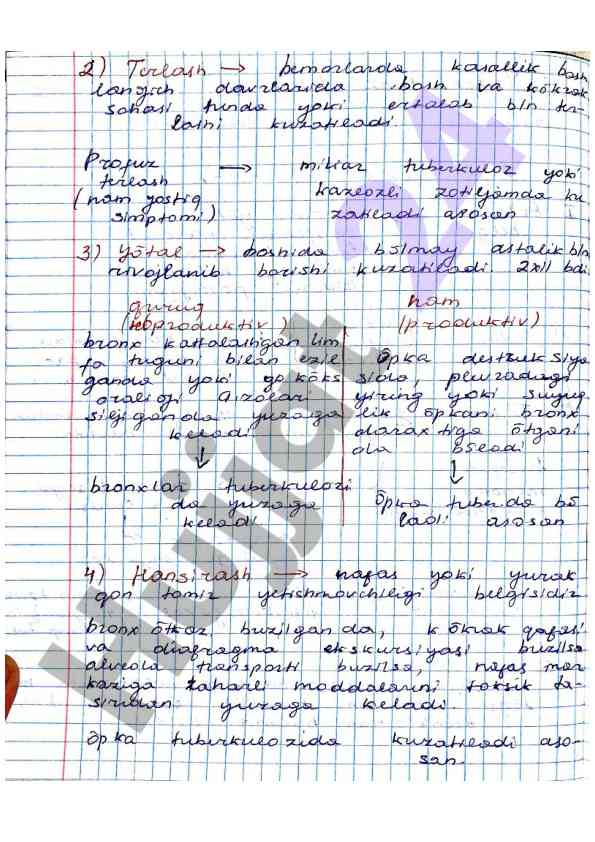 2) Terlash → bemorlarda kasallik bosh
langich davrlarida bosh va kökrak
sohasi tunda yoki ertalab bln ter-
lashi kuzatiladi.
Profuz → miliar tuberkuloz yoki
terlash kazeozli zotiljamda ku
(nam yostiq zatiladi asosan
simptomi)
3) Yötal → boshida bölmay astalik bln
rivojlanib borishi kuzatiladi. 2xil bdi
quruq
(noproduktiv)
bronx kattalashgan lim
fa tuguni bilan ezil
ganda yoki gököks
oraligi a'zolari
siljiganda yuzaga
keladi
↓
bronxlar tuberkulozi
da yuzaga
keladi
nam
(produktiv)
öpka destruksiya
sida, plevradagi
yiring yoki suyuq
lik öpkani bronx
daraxtiga ötgani
da böladi
↓
öpka tuber.da bö
ladi asosan
4) Hansirash → nafas yoki yurak
qon tomir yetishmovchiligi belgisidir
bronx ötkaz. buzilganda, kökrak qafasi
va diafragma ekskursiyasi buzilsa
alveola transporti buzilsa, nafas mar
kaziga zaharli moddalarni toksik ta-
siridan yuzaga keladi.
öpka tuberkulozida kuzatiladi aso-
san
Hujjat 24